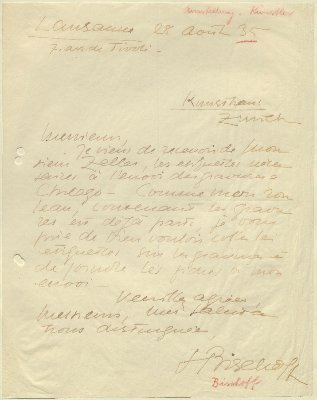 Ausstellung. Künstler
Lausanne 28 août 35
7 av. de Tivoli.
Kunsthaus
Zurich
Messieurs,
Je viens de recevoir de Mon
sieur Zeller, les étiquettes néces
saires à l'envoi des gravures à
Chicago - Comme mon rou
leau, contenant les gravu
res est déjà parti, je vous
prie de bien vouloir coller les
étiquettes sur les gravures et
de joindre les à mon
envoi -
Veuillez agréer
Messieurs, mes saluta
tions distinguées
Bischoff
Bischoff